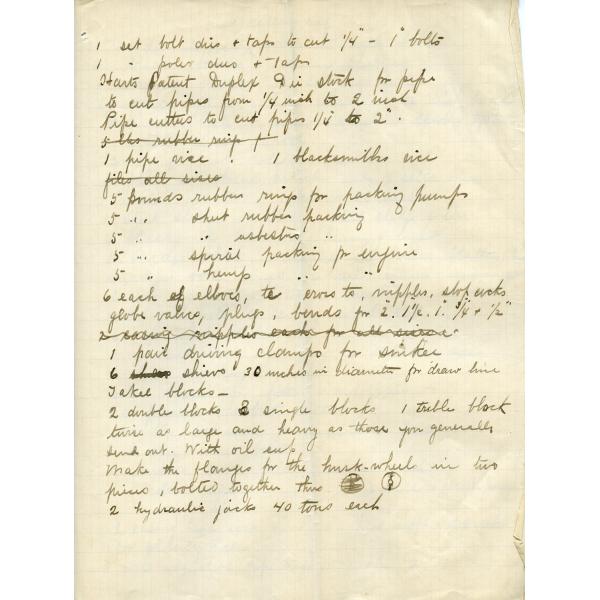 1 set bolt dies + taps to cut 1/4" - 1" bolts
1 " dies + Taps
Harts Patent Duplex Die stock for pipe
to cut pipes from 1/4 inch to 2 inch
Pipe cutters to cut pipes 1/4 to 2".
5 lbs rubber rings
1 pipe vice . 1 blacksmiths vice
files all sizes
5 Pounds rubber rings for packing pumps
5 " . sheet rubber packing
5 " " asbestos "
5 " . spiral packing for engine
5 " hemp " "
6 each of elbows, te cross to, nipples, stop cocks,
globe valves, plugs, bends for 2". 1 1/2. 1". 3/4 + 1/2"
2 nipples each for all sizes
1 pair driving clamps for sinker
6 shivs 30 inches in diameter for draw line
Takel blocks -
2 double blocks 2 single blocks 1 treble block
twice as large and heavy as those you generally
send out. With oil cup
Make the flanges for the -wheels in two
pieces, bolted together thus
2 hydraulic jacks 40 tons each